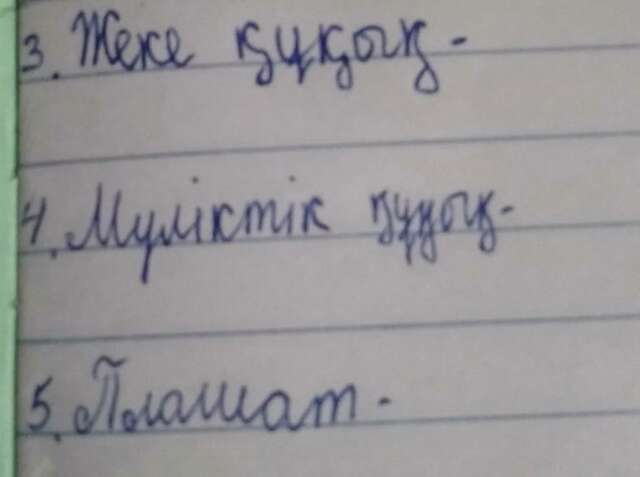 3. Жеке құқық -
4. Мүліктік құқық -
5. Плашат -